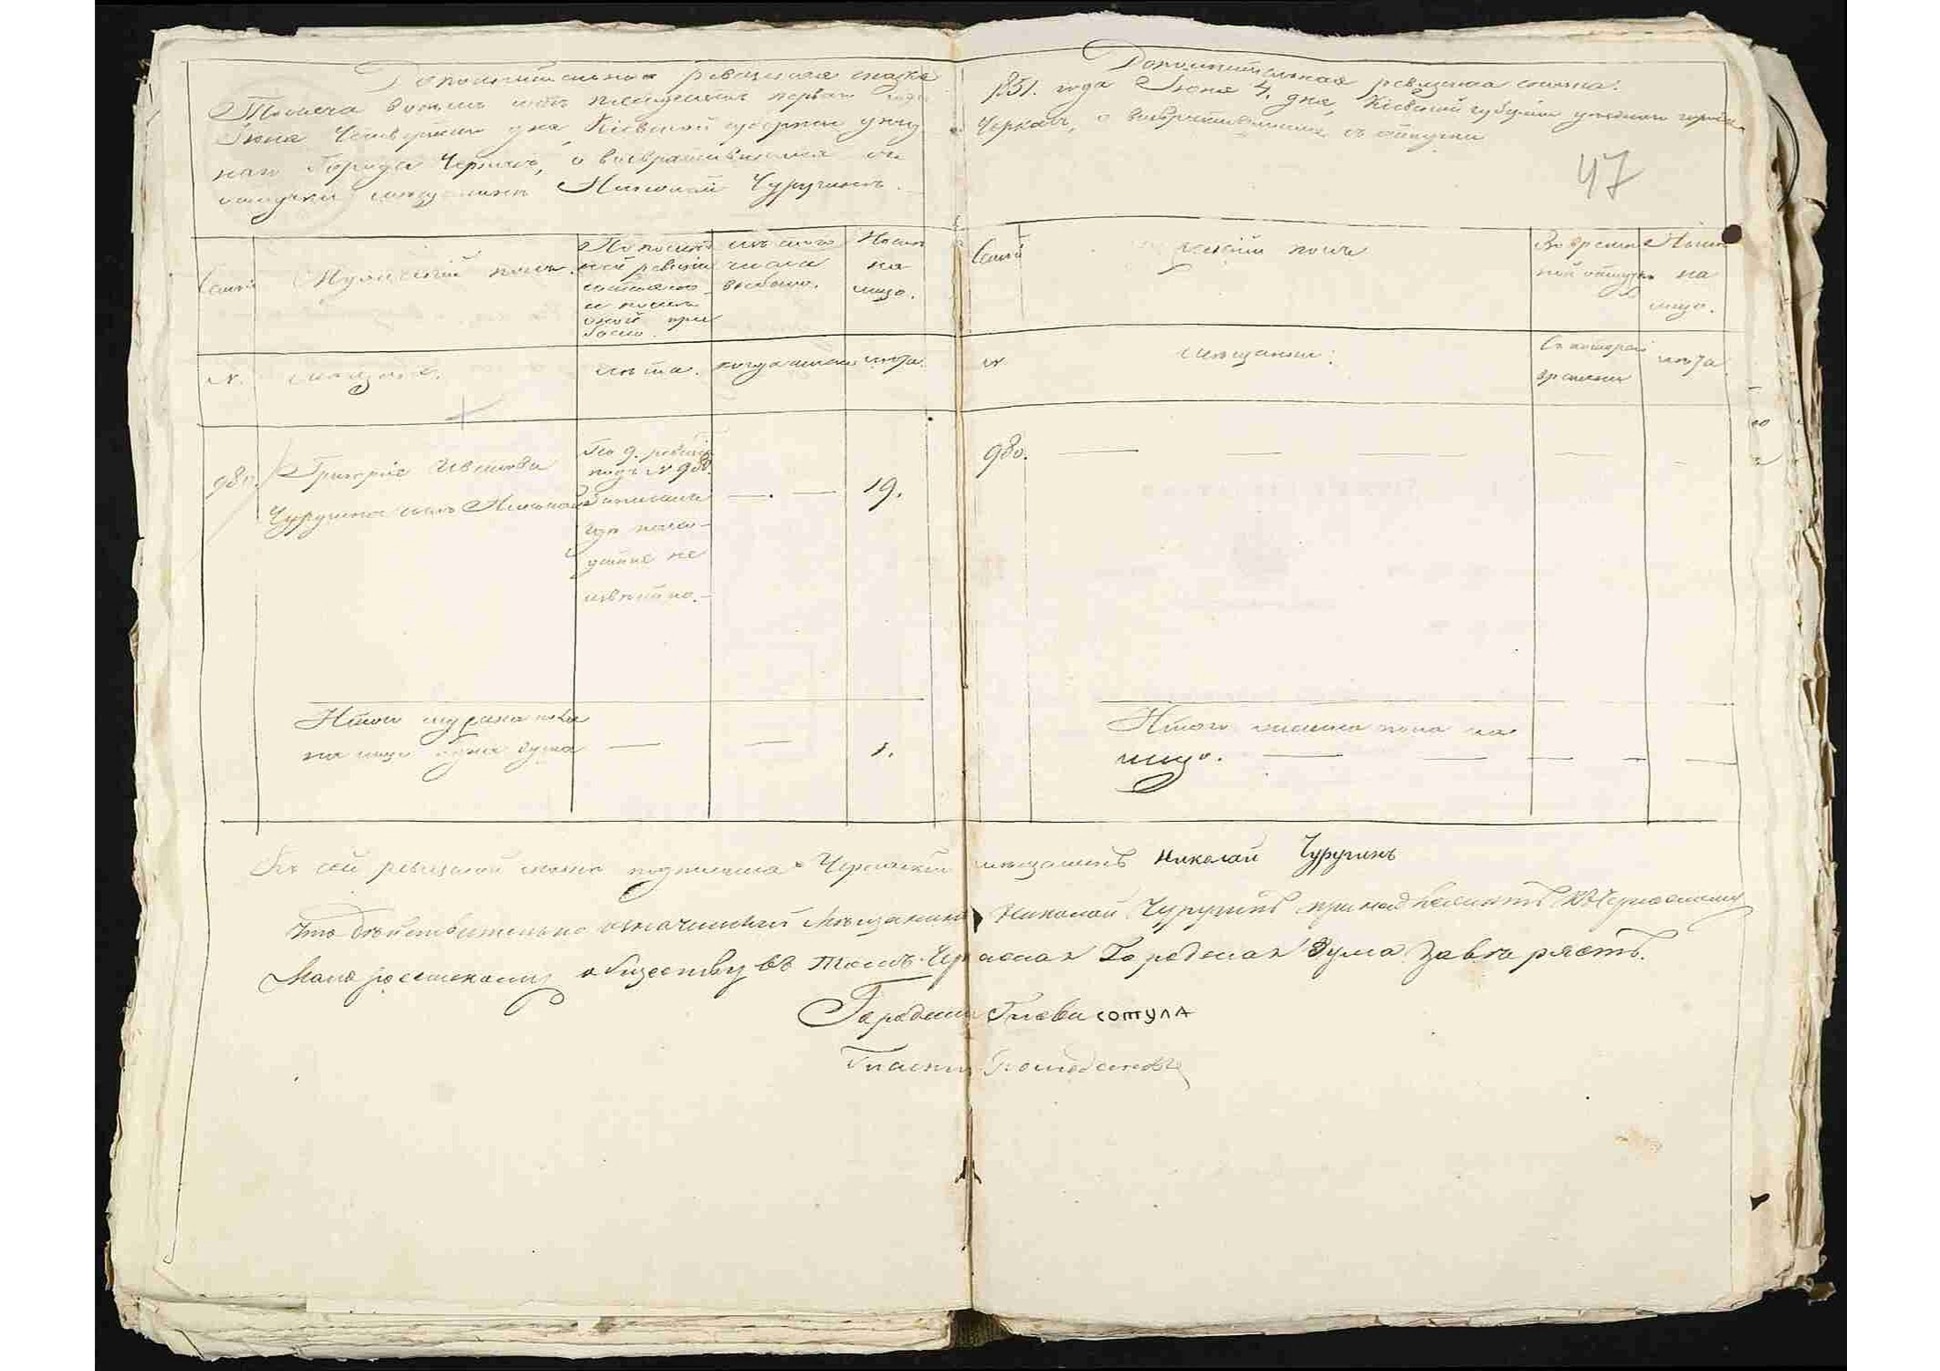 Дополнительная ревизская сказка
Тысяча восемь сотъ пятьдесятъ перваго года
Іюня Четвертаго дня, Кіевской губерніи уезд
наго Города Черкасъ, о возвратившемся
отлучки мещанинъ Николай Чуругинъ.
Семьи
Мужескій полъ.
По послед
ней ревизіи
состояло
и после
оной при
было.
изъ того
числа
выбыло.
Ныне
на
лицо.
№.
мещане.
лета.
когда именно
лета.
980.
Григорія Иванова
Чуругина сынъ Николай
По 9. ревизіи
подъ № 980
не
известно.
— . —
19.
Итого мужеска пола
на лицо одна душа — —
1.
Дополнительная ревизская сказка:
1851. года Іюня 4. дня, Кіевской губерніи уезднаго города
Черкасъ, о возвратившемся съ отлучки
47
Семьи
Женскій полъ
Во времен
ной отлучке
Ныне
на
лицо.
№
мещане:
Съ котораго
времени
лета.
980. — — — — —
Итого женска пола на
лицо. — — — — —
Къ сей ревизской сказке подписался Черкаскій мещанинъ Николай Чуругинъ
Что действительно означенный Мещанинъ Николай Чуругинъ принадлежитъ къ Черкаскому
Мало россійскому обществу въ томъ Черкаская Городская Дума заверяетъ.
Городской Глава сотула
Гласный